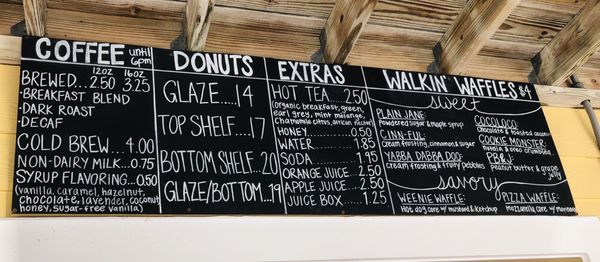 COFFEE until 6pm
12OZ 16OZ
BREWED... 2.50 3.25
·BREAKFAST BLEND
·DARK ROAST
·DECAF
COLD BREW...4.00
NON-DAIRY MILK...0.75
SYRUP FLAVORING...0.50
(vanilla, caramel, hazelnut,
chocolate, lavender, coconut
honey, sugar-free vanilla)
DONUTS
GLAZE.....14
TOP SHELF....17
BOTTOM SHELF..20
GLAZE/BOTTOM..19
EXTRAS
HOT TEA.....2.50
(organic breakfast, green,
earl grey, mint melange,
chamomile citrus, african nectar)
HONEY.........0.50
WATER.........1.85
SODA..........1.95
ORANGE JUICE...2.50
APPLE JUICE....2.50
JUICE BOX.....1.25
WALKIN' WAFFLES $4
sweet
PLAIN JANE:
Powdered sugar & maple syrup
C.INN-FUL:
Cream frosting, cinnamon, & sugar
YABBA DABBA DOO:
Cream frosting & fruity pebbles
COCOLOCO:
Chocolate & toasted coconut
COOKIE MONSTER:
Nutella & oreo crumbles
PB&J:
Peanut butter & grape jelly
savory
WEENIE WAFFLE:
Hot dog core w/ mustard & ketchup
PIZZA WAFFLE:
Mozzarella core w/